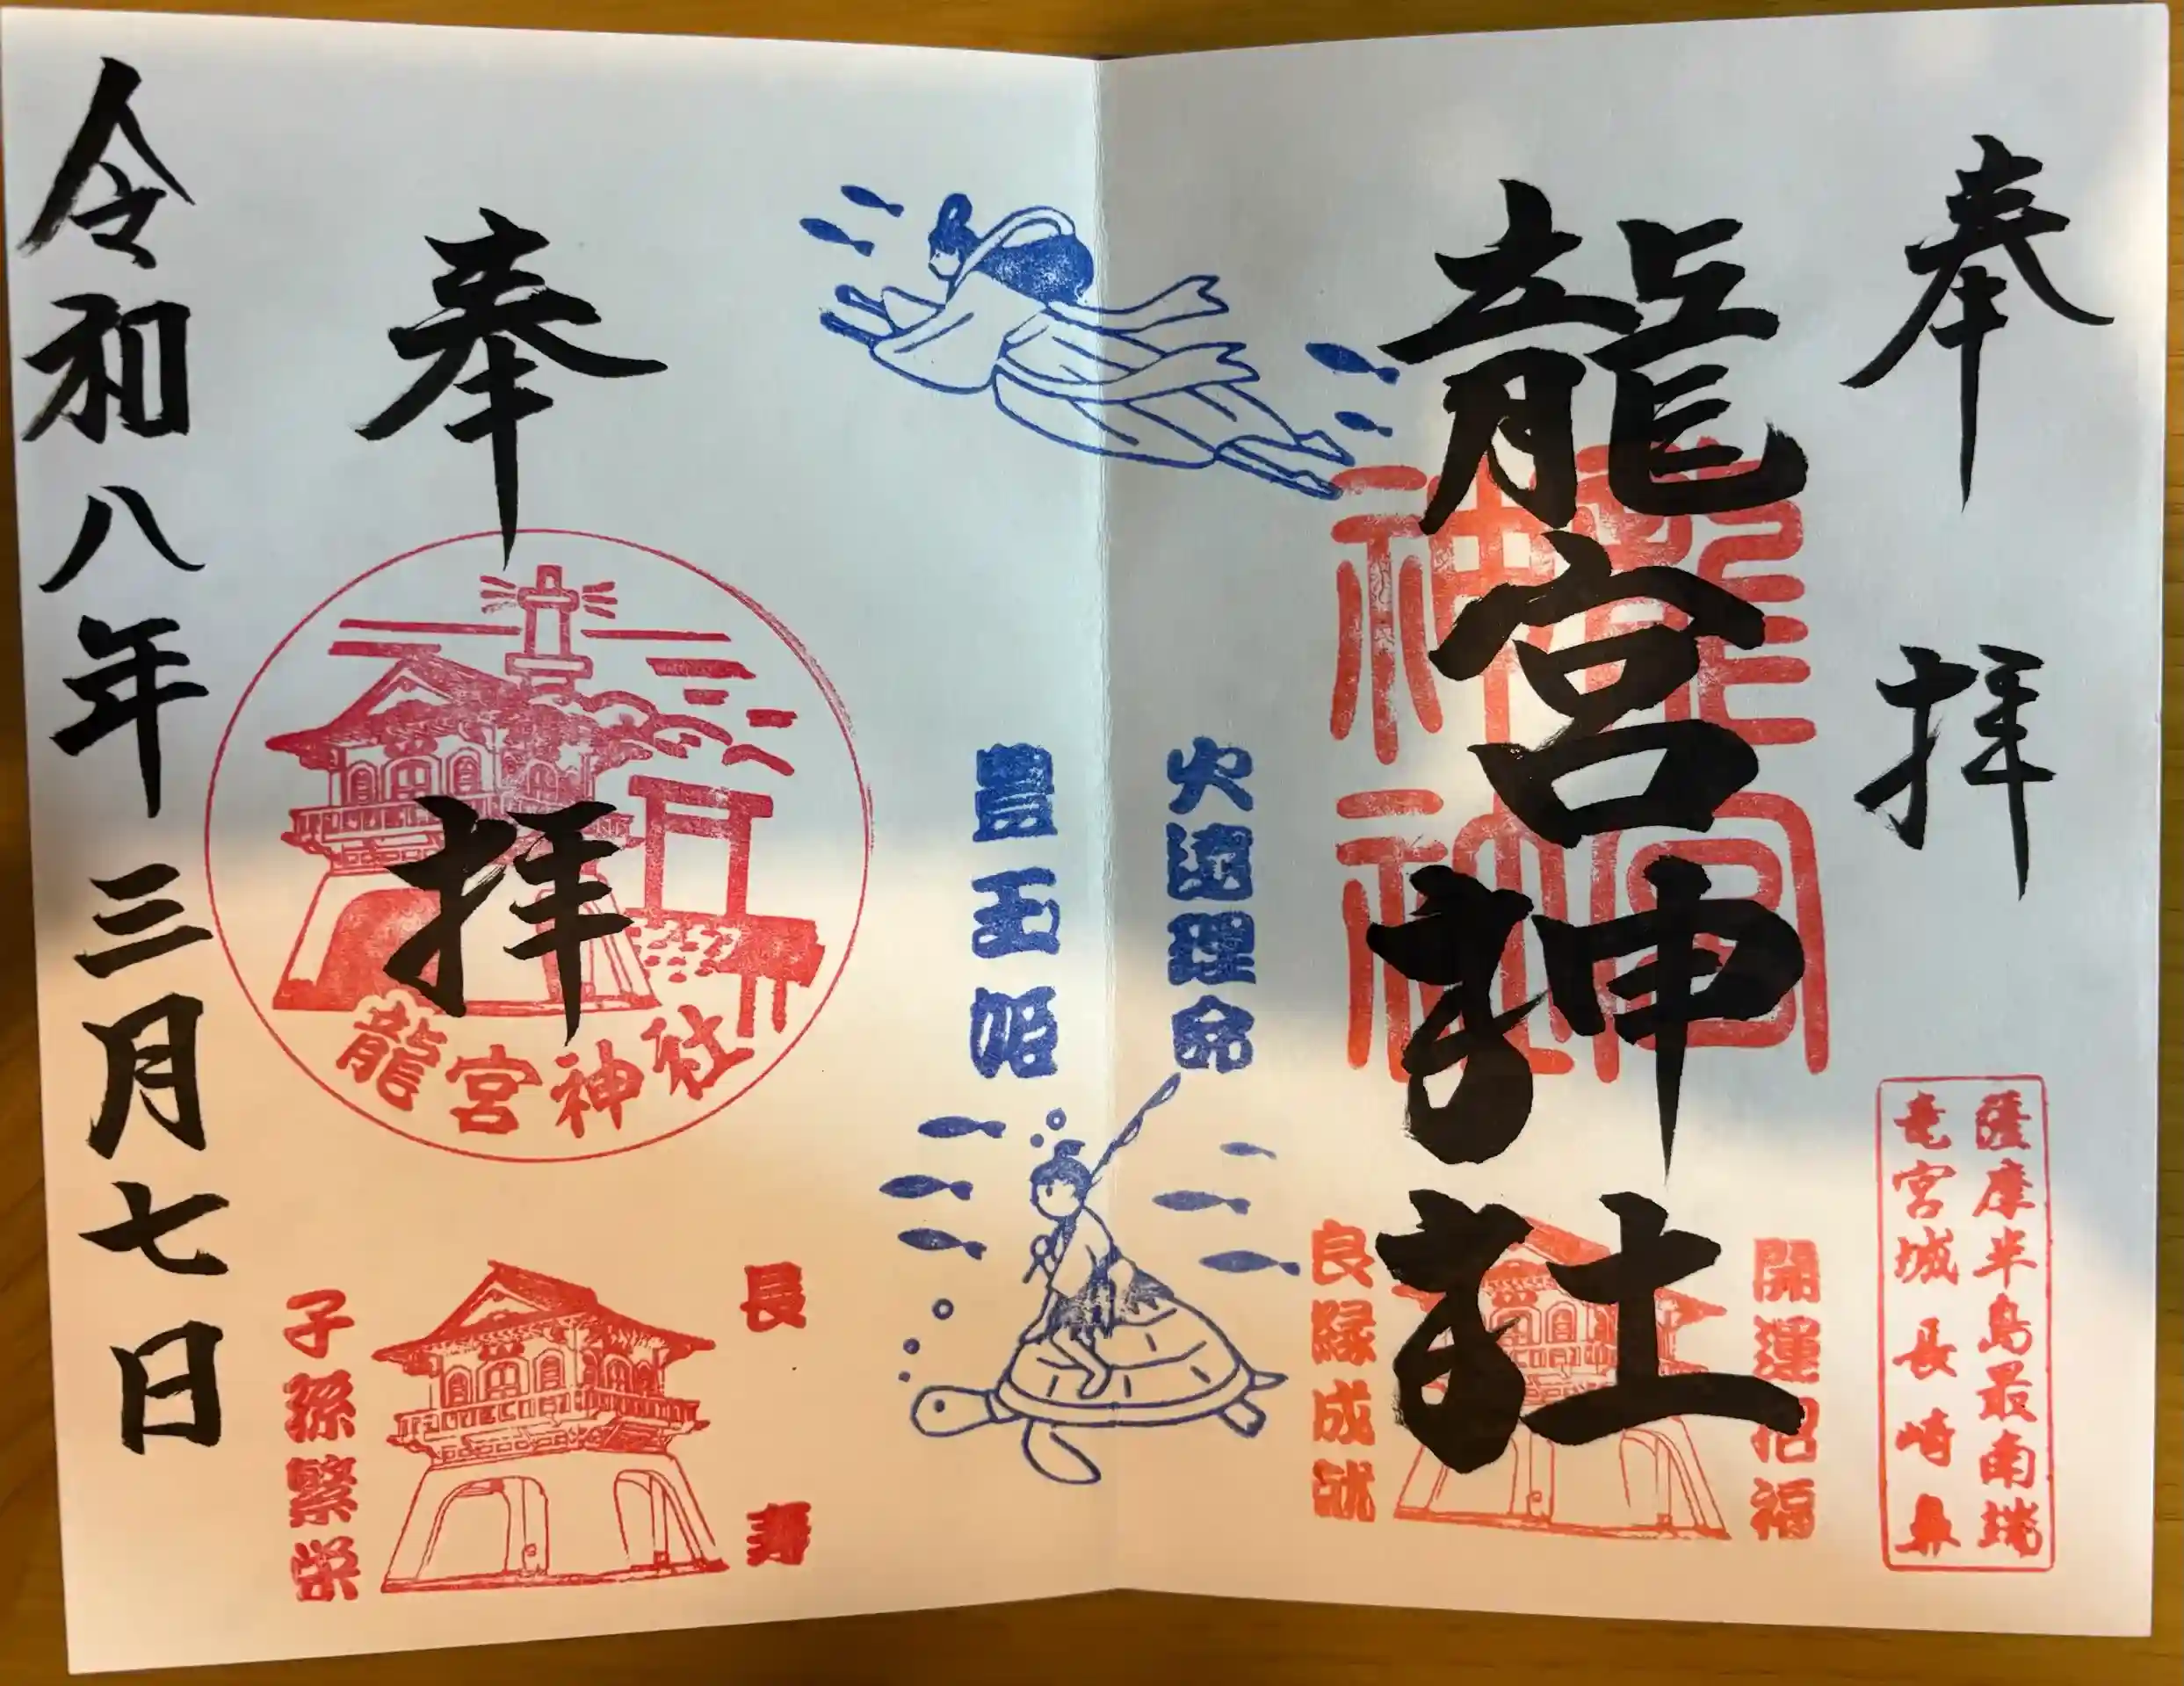 奉拝
龍宮神社
龍宮神社
薩摩半島最南端
竜宮城長崎鼻
開運招福
良縁成就
火遠理命
豊玉姫
奉拝
龍宮神社
長寿
子孫繁栄
令和八年三月七日